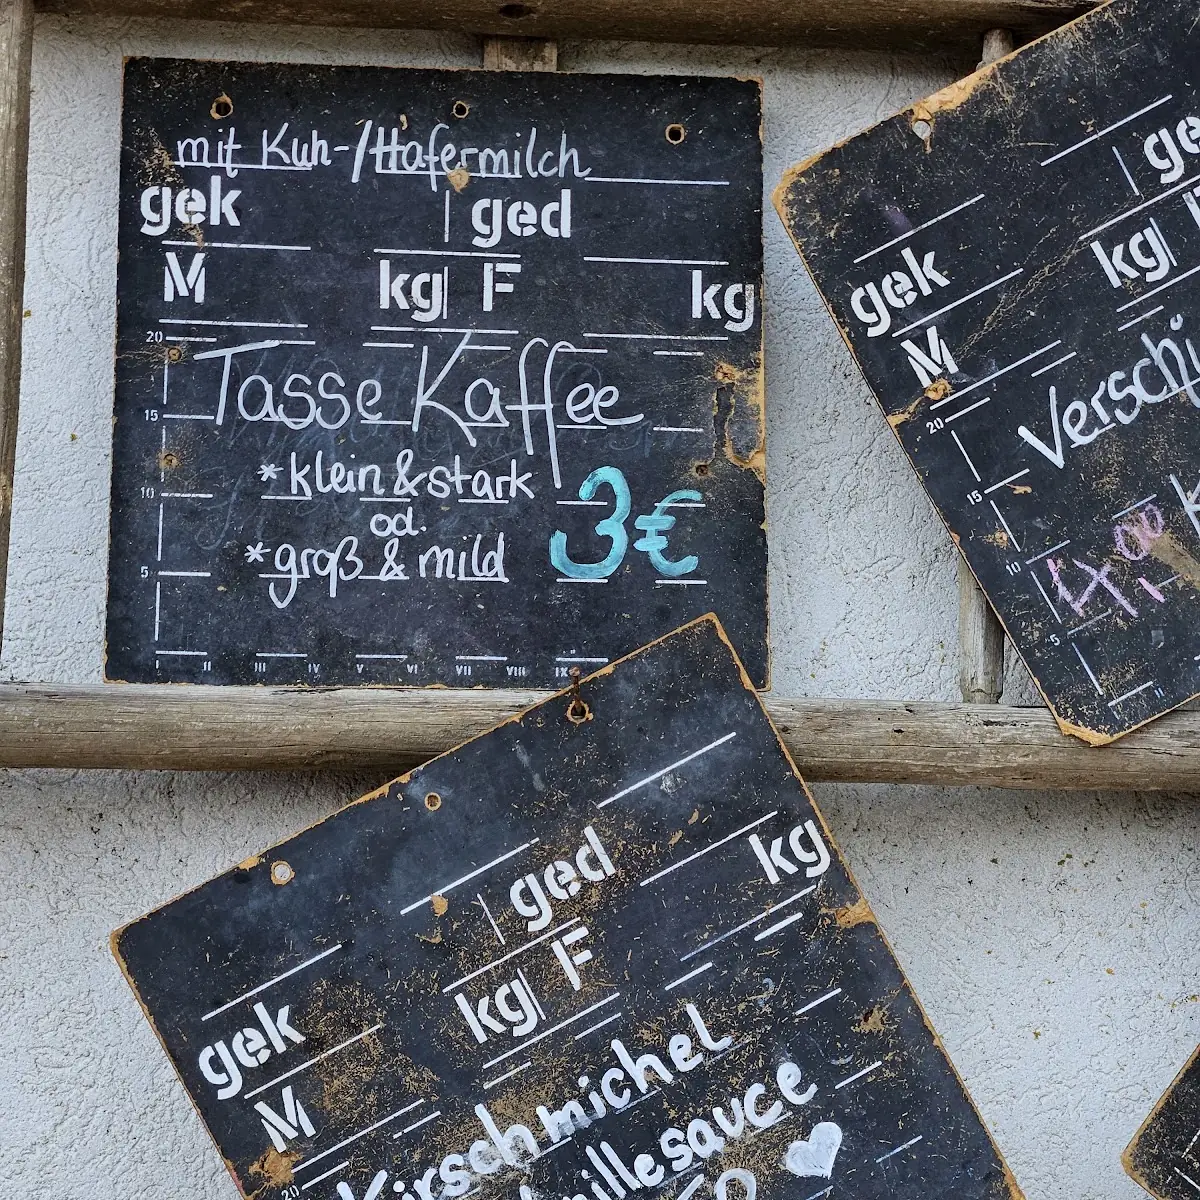 mit Kuh-/Hafermilch
gek ged
M kg F kg
20
Tasse Kaffee
15
*klein & stark
10
od.
3€
*groß & mild
5
I II III IV V VI VII VIII IX
gek
M kg
20
Verschi
15
4,00
10
5
II
ged
kg
gek
kg F
M
Kirschmichel
20